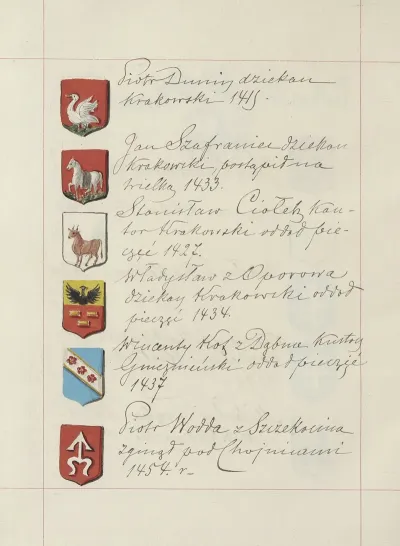 Piotr Dunin dziekan
Krakowski 1415.
Jan Szafraniec dziekan
Krakowski, postąpił na
wielką 1433.
Stanisław Ciołek, Kan-
tor Krakowski oddał pie-
częć 1427.
Władysław z Oporowa
dziekan Krakowski oddał
pieczęć 1434.
Wincenty Kot z Dębna Kustosz
Gnieźnieński oddał pieczęć
1437
Piotr Wodda z Szczekocina
zginął pod Chojnicami
1454. r